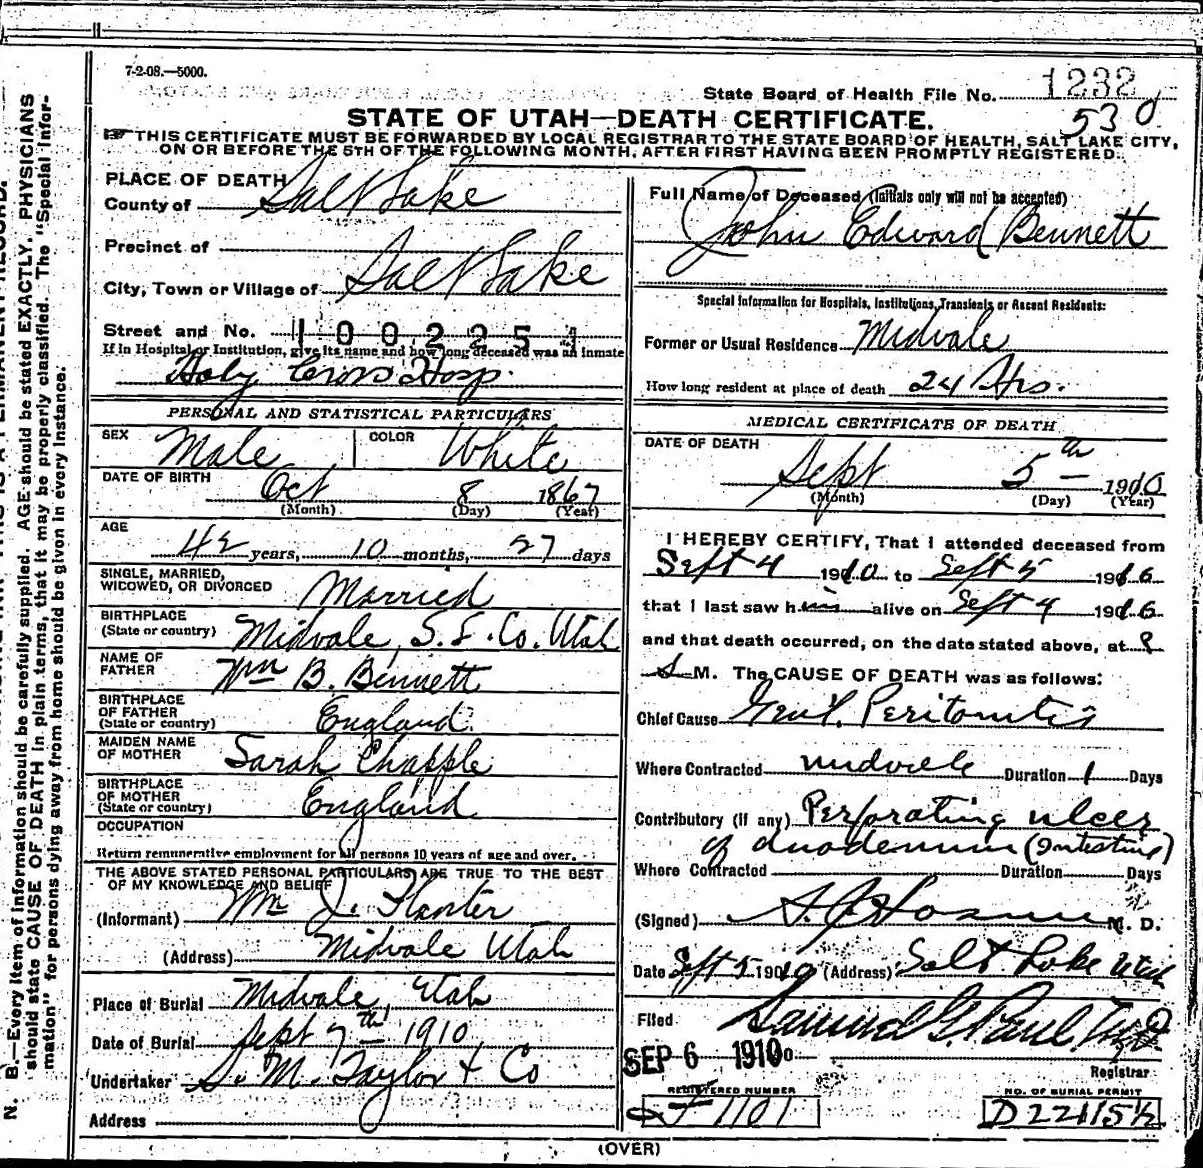 7-2-08.—5000.
State Board of Health File No. 1232
530
STATE OF UTAH—DEATH CERTIFICATE.
☞ THIS CERTIFICATE MUST BE FORWARDED BY LOCAL REGISTRAR TO THE STATE BOARD OF HEALTH, SALT LAKE CITY,
ON OR BEFORE THE 5TH OF THE FOLLOWING MONTH, AFTER FIRST HAVING BEEN PROMPTLY REGISTERED.
PLACE OF DEATH
County of Salt Lake
Precinct of
City, Town or Village of Salt Lake
Street and No. 1002251
If in Hospital or Institution, give its name and how long deceased was an inmate
Holy Cross Hosp.
PERSONAL AND STATISTICAL PARTICULARS
SEX Male COLOR White
DATE OF BIRTH Oct 8 1867
(Month) (Day) (Year)
AGE 42 years, 10 months, 27 days
SINGLE, MARRIED,
WIDOWED, OR DIVORCED Married
BIRTHPLACE
(State or country) Midvale, S. L. Co. Utah
NAME OF
FATHER Wm B. Bennett
BIRTHPLACE
OF FATHER
(State or country) England
MAIDEN NAME
OF MOTHER Sarah Chapple
BIRTHPLACE
OF MOTHER
(State or country) England
OCCUPATION
Return remunerative employment for all persons 10 years of age and over.
THE ABOVE STATED PERSONAL PARTICULARS ARE TRUE TO THE BEST
OF MY KNOWLEDGE AND BELIEF
(Informant) Wm J.
(Address) Midvale Utah
Place of Burial Midvale, Utah
Date of Burial Sept 7th 1910
Undertaker S. M. Taylor & Co
Address
Full Name of Deceased (Initials only will not be accepted)
John Edward Bennett
Special Information for Hospitals, Institutions, Transients or Recent Residents:
Former or Usual Residence Midvale
How long resident at place of death 24 Hrs.
MEDICAL CERTIFICATE OF DEATH
DATE OF DEATH
Sept 5th 1910
(Month) (Day) (Year)
I HEREBY CERTIFY, That I attended deceased from
Sept 4 1910 to Sept 5 1910
that I last saw him alive on Sept 4 1910
and that death occurred, on the date stated above, at 8
M. The CAUSE OF DEATH was as follows:
Chief Cause Genl. Peritonitis
Where Contracted Midvale Duration 1 Days
Contributory (if any) Perforating ulcer
of duodenum (Intestine)
Where Contracted Duration Days
(Signed) M. D.
Date Sept 5 1910 (Address) Salt Lake Utah
Filed Samuel G. Paul, M.D.
SEP 6 1910
Registrar
REGISTERED NUMBER
F1101
NO. OF BURIAL PERMIT
D22115½
(OVER)
N. B.—Every item of information should be carefully supplied. AGE should be stated EXACTLY. PHYSICIANS
should state CAUSE OF DEATH in plain terms, that it may be properly classified. The "Special Infor-
mation" for persons dying away from home should be given in every instance.